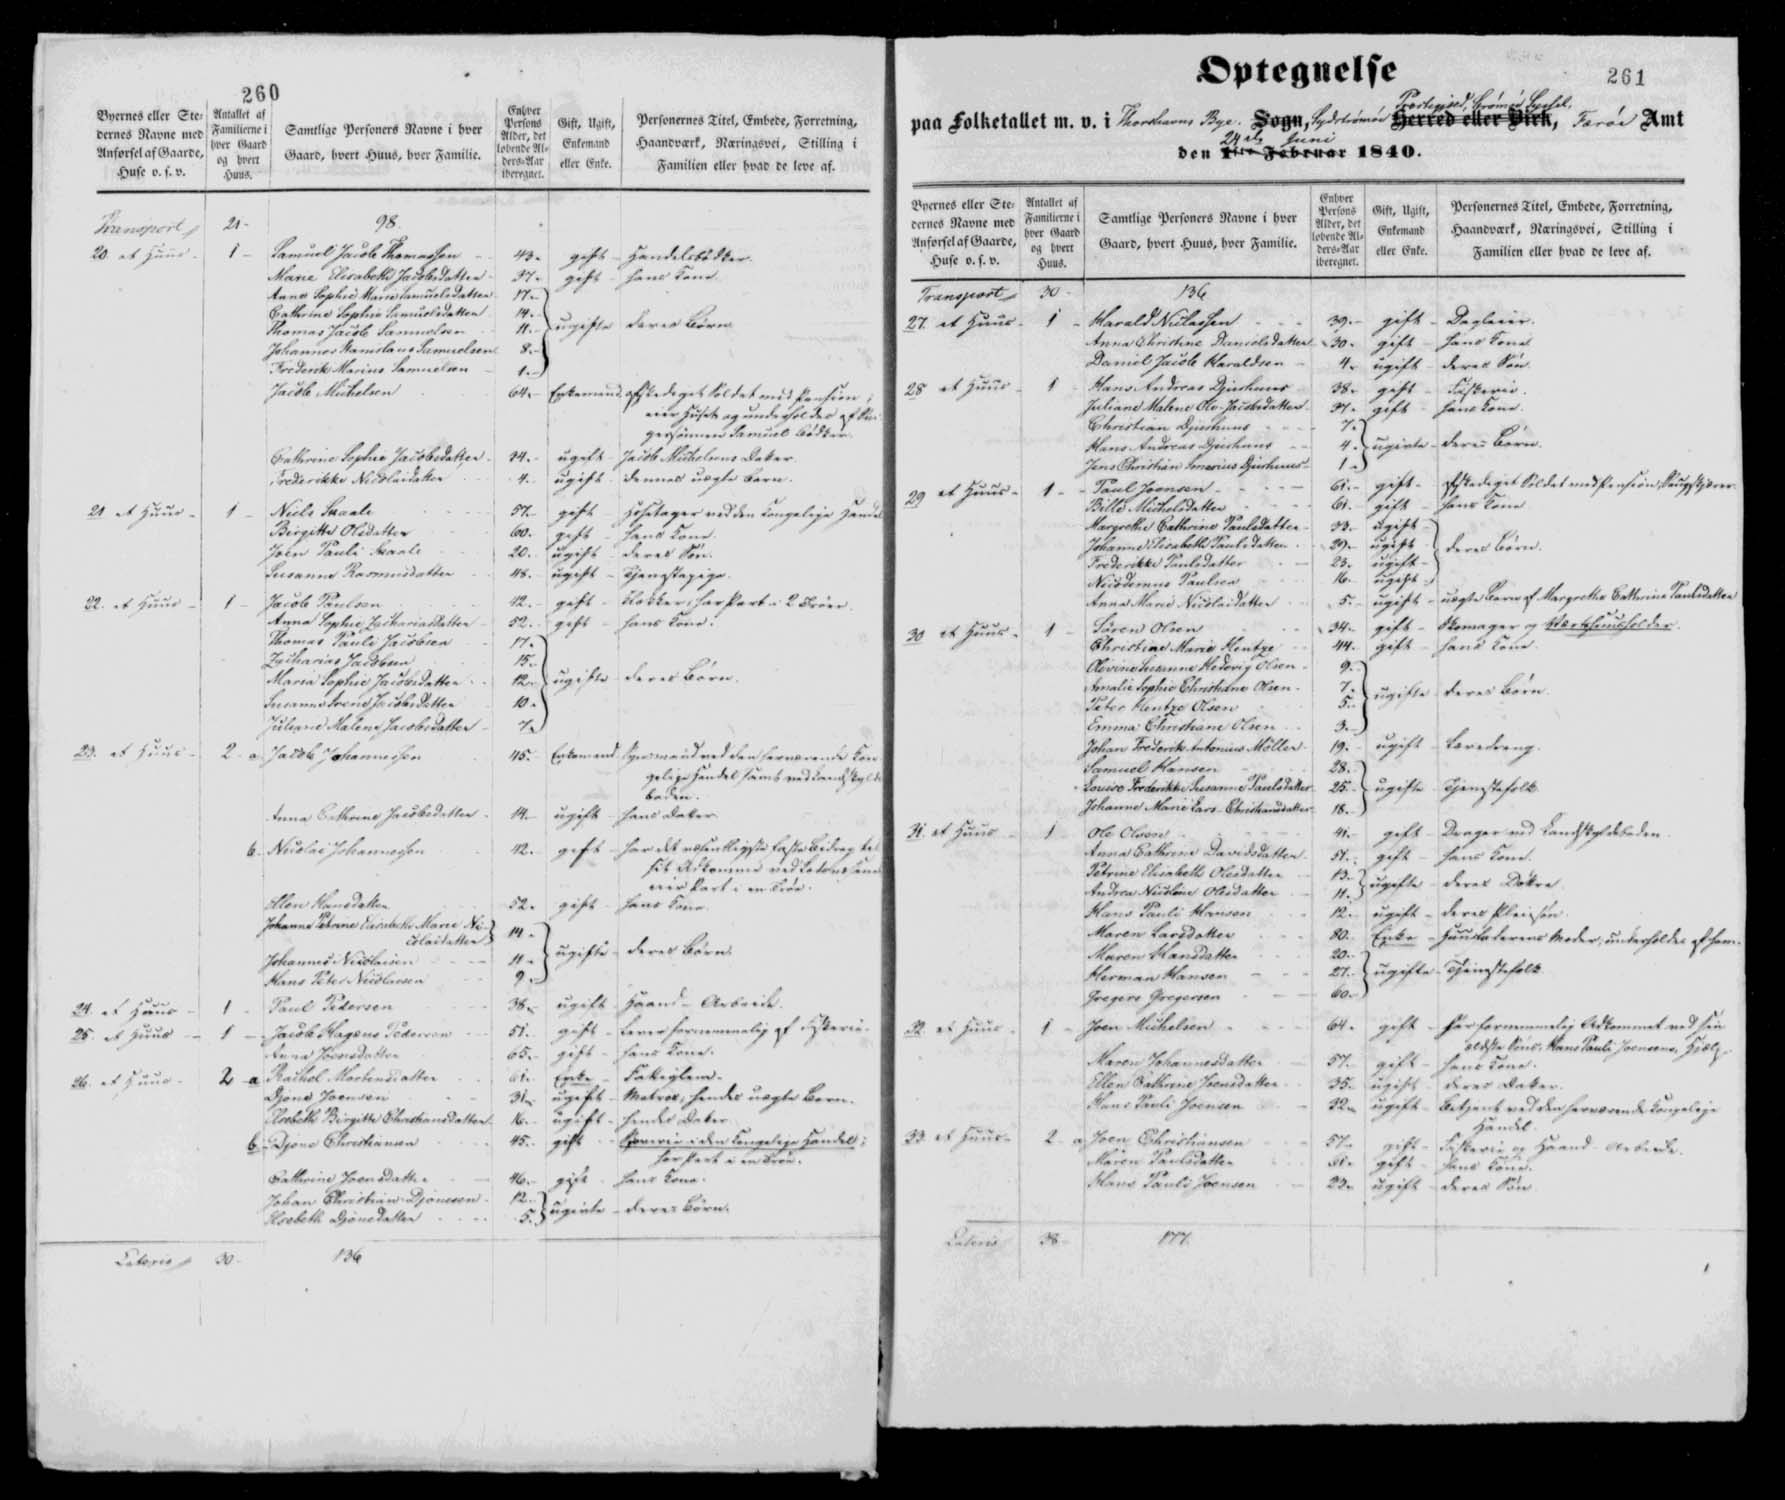 260
Byernes eller Ste-
dernes Navne med
Anførsel af Gaarde,
Huse o. s. v.
Antallet af
Familierne i
hver Gaard
og hvert
Huus.
Samtlige Personers Navne i hver
Gaard, hvert Huus, hver Familie.
Enhver
Persons
Alder, det
løbende Al-
ders-Aar
iberegnet.
Gift, Ugift,
Enkemand
eller Enke.
Personernes Titel, Embede, Forretning,
Haandværk, Næringsvei, Stilling i
Familien eller hvad de leve af.
Transport 21 - 98.
20. et Huus - 1 - Samuel Jacob Thomassen - 43. gift - Handelsbødker.
Marie Elisabeth Jacobsdatter - 37 - gift - hans Kone.
Anne Sophie Marie Samuelsdatter 17 -
Cathrine Sophie Samuelsdatter 14 -
Thomas Jacob Samuelsen 11 - ugifte deres Børn
Johannes Stanislaus Samuelsen 8 -
Frederik Marius Samuelsen 1 -
Jacob Michelsen 64 - Enkemand, afskediget Soldat med Pension;
eier Huset og underholdes af Svi-
gersønnen Samuel Bødker.
Cathrine Sophie Jacobsdatter 34 - ugift - Jacob Michelsens Datter.
Frederikke Nicolaidatter 4 - ugift - dennes uægte Barn.
21 et Huus - 1 - Niels Skaale 57 - gift - Hosetager ved den Kongelige Handel
Birgitte Olsdatter 60 - gift - hans Kone.
Joen Pauli Skaale 20 - ugift - deres Søn.
Susanne Rasmusdatter 48 - ugift - Tjenestepige.
22. et Huus - 1 - Jacob Paulsen 42 - gift - Klokker; har Part i 2 Baade.
Anna Sophie Zachariasdatter 52 - gift - hans Kone.
Thomas Pauli Jacobsen 17 -
Zacharias Jacobsen 15 -
Maria Sophie Jacobsdatter 12 - ugifte - deres Børn.
Susanne Irene Jacobsdatter 10 -
Juliane Malene Jacobsdatter 7 -
23. et Huus - 2 - a Jacob Johannessen 45 - Enkemand ved den herværende Kon-
gelige Handel samt ved Landskyld-
boden.
Anna Cathrine Jacobsdatter 14 - ugift - hans Datter
b. Nicolai Johannessen 42 - gift -
Ellen Hansdatter 52 - gift - hans Kone.
Johanne Petrine Elisabeth Marie Ni-
colaidatter 14 -
Johannes Nicolaisen 11 - ugifte - deres Børn.
Hans Peter Nicolaisen 9 -
24. et Huus - 1 - Paul Pedersen 38 - ugift Haand-Arbeide.
25. et Huus - 1 - Jacob Magnus Pedersen 51 - gift - lever fornemmelig af Fiskerie.
Anna Joensdatter 65 - gift - hans Kone.
26. et Huus - 2 - a Rachel Mortensdatter 61 - Enke - Fattiglem.
Djone Joensen 31 - ugift - Matros, hendes uægte Barn.
Elsebeth Birgitte Christiansdatter 16 - ugift - hendes Datter.
b - Djone Christiansen 45 - gift - i den Kongelige Handel;
har Part i en Baad.
Cathrine Joensdatter 46 - gift - hans Kone.
Johan Christian Djonesen 12 -
Elsebeth Djonesdatter 5 - ugifte - deres Børn.
Lateris 30 - 136
261
Optegnelse
paa Folketallet m. v. i Thorshavns Bye. Sogn, Sydstrømøe Præstegield, Strømøe Syssel, Herred eller Birk, Færøe Amt
den 1ste Februar 24de Juni 1840.
Byernes eller Ste-
dernes Navne med
Anførsel af Gaarde,
Huse o. s. v.
Antallet af
Familierne i
hver Gaard
og hvert
Huus.
Samtlige Personers Navne i hver
Gaard, hvert Huus, hver Familie.
Enhver
Persons
Alder, det
løbende Al-
ders-Aar
iberegnet.
Gift, Ugift,
Enkemand
eller Enke.
Personernes Titel, Embede, Forretning,
Haandværk, Næringsvei, Stilling i
Familien eller hvad de leve af.
Transport 30 - 136
27. et Huus - 1 - Harald Niclassen 39 - gift - Dagleier.
Anna Christine Danielsdatter 30 - gift - hans Kone
Daniel Jacob Haraldsen 4 - ugift - deres Søn
28 et Huus - 1 - Hans Andreas Djurhuus 38 - gift - Fiskerie.
Juliane Malene Ole-Jacobsdatter 37 - gift - hans Kone.
Christian Djurhuus 7 -
Hans Andreas Djurhuus 4 - ugifte - deres Børn.
Jens Christian Djurhuus 1 -
29 et Huus - 1 - Paul Joensen 61 - gift - Afskediget Soldat med Pension,
Bille Michelsdatter 61 - gift - hans Kone
Margrethe Cathrine Paulsdatter 33 - ugift
Johanne Elisabeth Paulsdatter 29 - ugift - deres Børn.
Frederikke Paulsdatter 23 - ugift
Nicodemus Paulsen 16 - ugift
Anna Marie Nicolaidatter 5 - ugift - uægte Barn af Margrethe Cathrine Paulsdatter
30 et Huus - 1 - Søren Olsen 34 - gift - Skomager og Værtshuusholder.
Christine Marie Hentze 44 - gift - hans Kone
Olevine Susanne Hedevig Olsen 9 -
Amalie Sophie Christiane Olsen 7 - ugifte - deres Børn
Peter Hentze Olsen 5 -
Emma Christiane Olsen 3 -
Johan Frederik Antonius Möller 19 - ugift - Læredreng.
Samuel Hansen 28 -
Louise Frederikke Susanne Paulsdatter 25 - ugifte - Tjenestefolk
Johanne Marie Lars-Christiansdatter 18 -
31. et Huus - 1 Ole Olsen 41 - gift - Drager ved Landskyldboden.
Anna Cathrine Davidsdatter 51 - gift - hans Kone.
Petrine Elisabeth Olesdatter 13 -
Andrea Nicoline Olesdatter 11 - ugifte - deres Døttre
Hans Pauli Hansen 12 - ugift - deres Pleiesøn.
Maren Larsdatter 80 - Enke - Huusfaderens Moder, underholdes af ham.
Maren Hansdatter 20 -
Herman Hansen 27 - ugifte - Tjenestefolk
Gregers Gregersen 60 -
32. et Huus - 1 - Joen Michelsen 64 - gift - har fornemmelig Udkommet ved sin
ældste Søns, Hans Pauli Joensens, Hjælp.
Maren Johannesdatter 57 - gift - hans Kone.
Ellen Cathrine Joensdatter 35 - ugift - deres Datter.
Hans Pauli Joensen 32 - ugift - Betjent ved den herværende Kongelige
Handel.
33 et Huus - 2 - a Joen Christiansen 57 - gift - Fiskerie og Haand-Arbeide.
Maren Paulsdatter 61 - gift - hans Kone.
Hans Pauli Joensen 22 - ugift - deres Søn
Lateris 38 - 177.